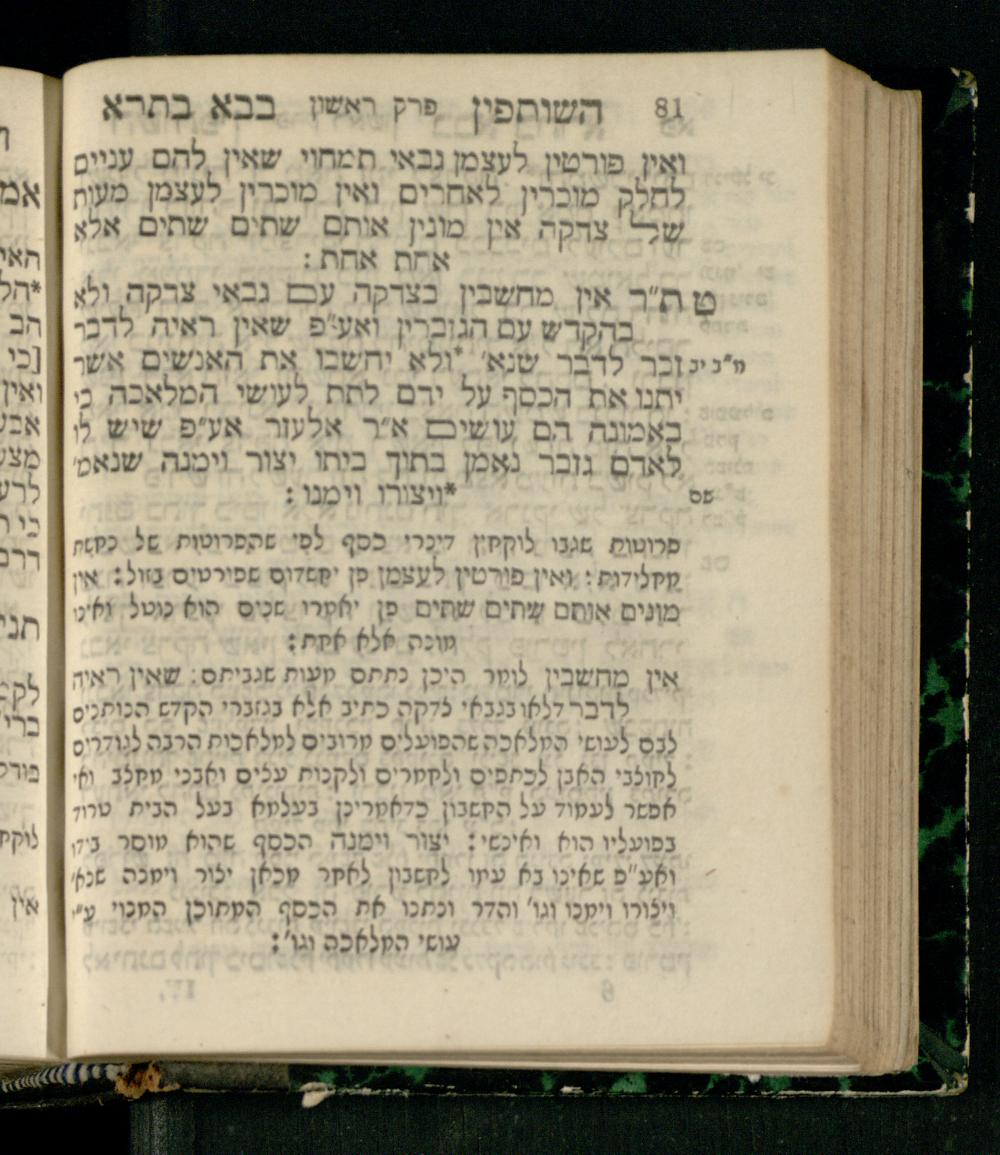 81 השותפין פרק ראשון בבא בתרא
ואין פורטין לעצמן גבאי תמחוי שאין להם עניים
לחלק מוכרין לאחרים ואין מוכרין לעצמן מעות
של צדקה אין מונין אותם שתים שתים אלא
אחת אחת :
ט ת״ר אין מחשבין בצדקה עם גבאי צדקה ולא
בהקדש עם הגזברין ואע״פ שאין ראיה לדבר
מ״ב יב זכר לדבר שנא׳ *ולא יחשבו את האנשים אשר
יתנו את הכסף על ידם לתת לעושי המלאכה כי
באמונה הם עושים א״ר אלעזר אע״פ שיש לו
לאדם גזבר נאמן בתוך ביתו יצור וימנה שנאמ׳
שם *ויצורו וימנו :
פרוטות שגבו לוקחין דינרי כסף לפי שהפרוטות של נחשת
מחלידות : ואין פורטין לעצמן פן יחשדום שפורטים בזול : אין
מונים אותם שתים שתים פן יאמרו שנים הוא נוטל ואינו
מונה אלא אחת :
אין מחשבין לומר היכן נתתם מעות שגביתם : שאין ראיה
לדבר דלאו בגבאי צדקה כתיב אלא בגזברי הקדש הנותנים
לבם לעושי המלאכה שהפועלים מרובים למלאכות הרבה לגודרים
לחוצבי האבן לכתפים ולחמרים ולקנות עצים ואבני מחצב ואי
אפשר לעמוד על החשבון כדאמרינן בעלמא בעל הבית טרוד
בפועליו הוא ואינשי : יצור וימנה הכסף שהוא מוסר בידו
ואע״פ שאינו בא עמו לחשבון לאחר מכאן יצור וימנה שנא׳
ויצורו וימנו וגו׳ והדר ונתנו את הכסף המתוכן המנוי ע״י
עושי המלאכה וגו׳ :